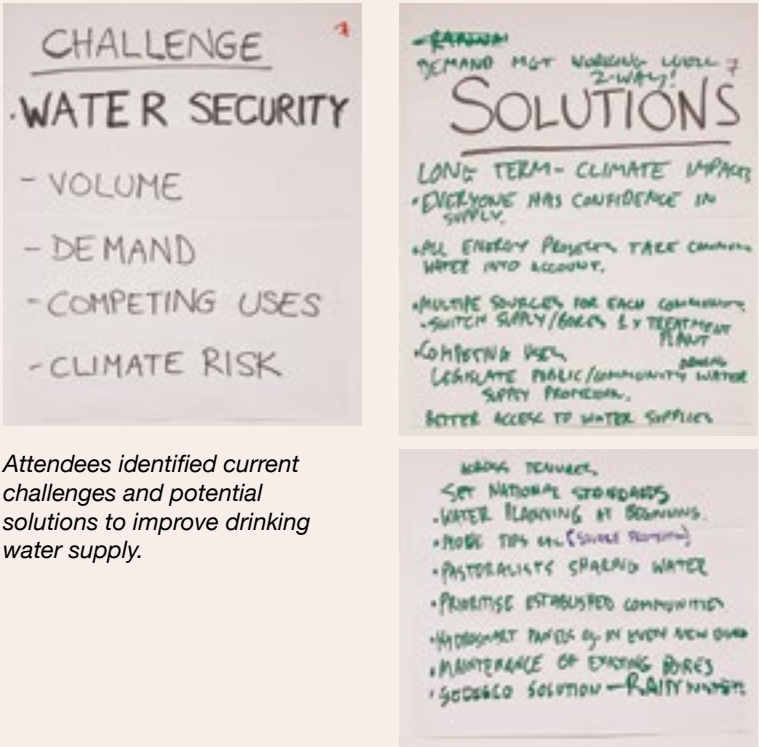 CHALLENGE
7
·WATER SECURITY
- VOLUME
- DEMAND
- COMPETING USES
- CLIMATE RISK
Attendees identified current
challenges and potential
solutions to improve drinking
water supply.
DEMAND MGT WORKING WELL 7
2-WAY!
SOLUTIONS
LONG TERM - CLIMATE IMPACTS
·EVERYONE HAS CONFIDENCE IN
SUPPLY.
·ALL ENERGY PROJECTS TAKE COMMUNITY
WATER INTO ACCOUNT.
·MULTIPLE SOURCES FOR EACH COMMUNITY
·SWITCH SUPPLY/BORES 1 x TREATMENT
PLANT
·COMPETING USES
DRINKING
LEGISLATE PUBLIC/COMMUNITY WATER
SUPPLY PROTECTION.
BETTER ACCESS TO WATER SUPPLIES
ACROSS TENURES.
SET NATIONAL STANDARDS
·WATER PLANNING AT BEGINNING.
·MORE TIPS
·PASTORALISTS SHARING WATER
·PRIORITISE ESTABLISHED COMMUNITIES
·HYDROSMART PANELS eg. IN EVEN NEW
·MAINTENANCE OF EXISTING BORES
SOLUTION - RAINWATER